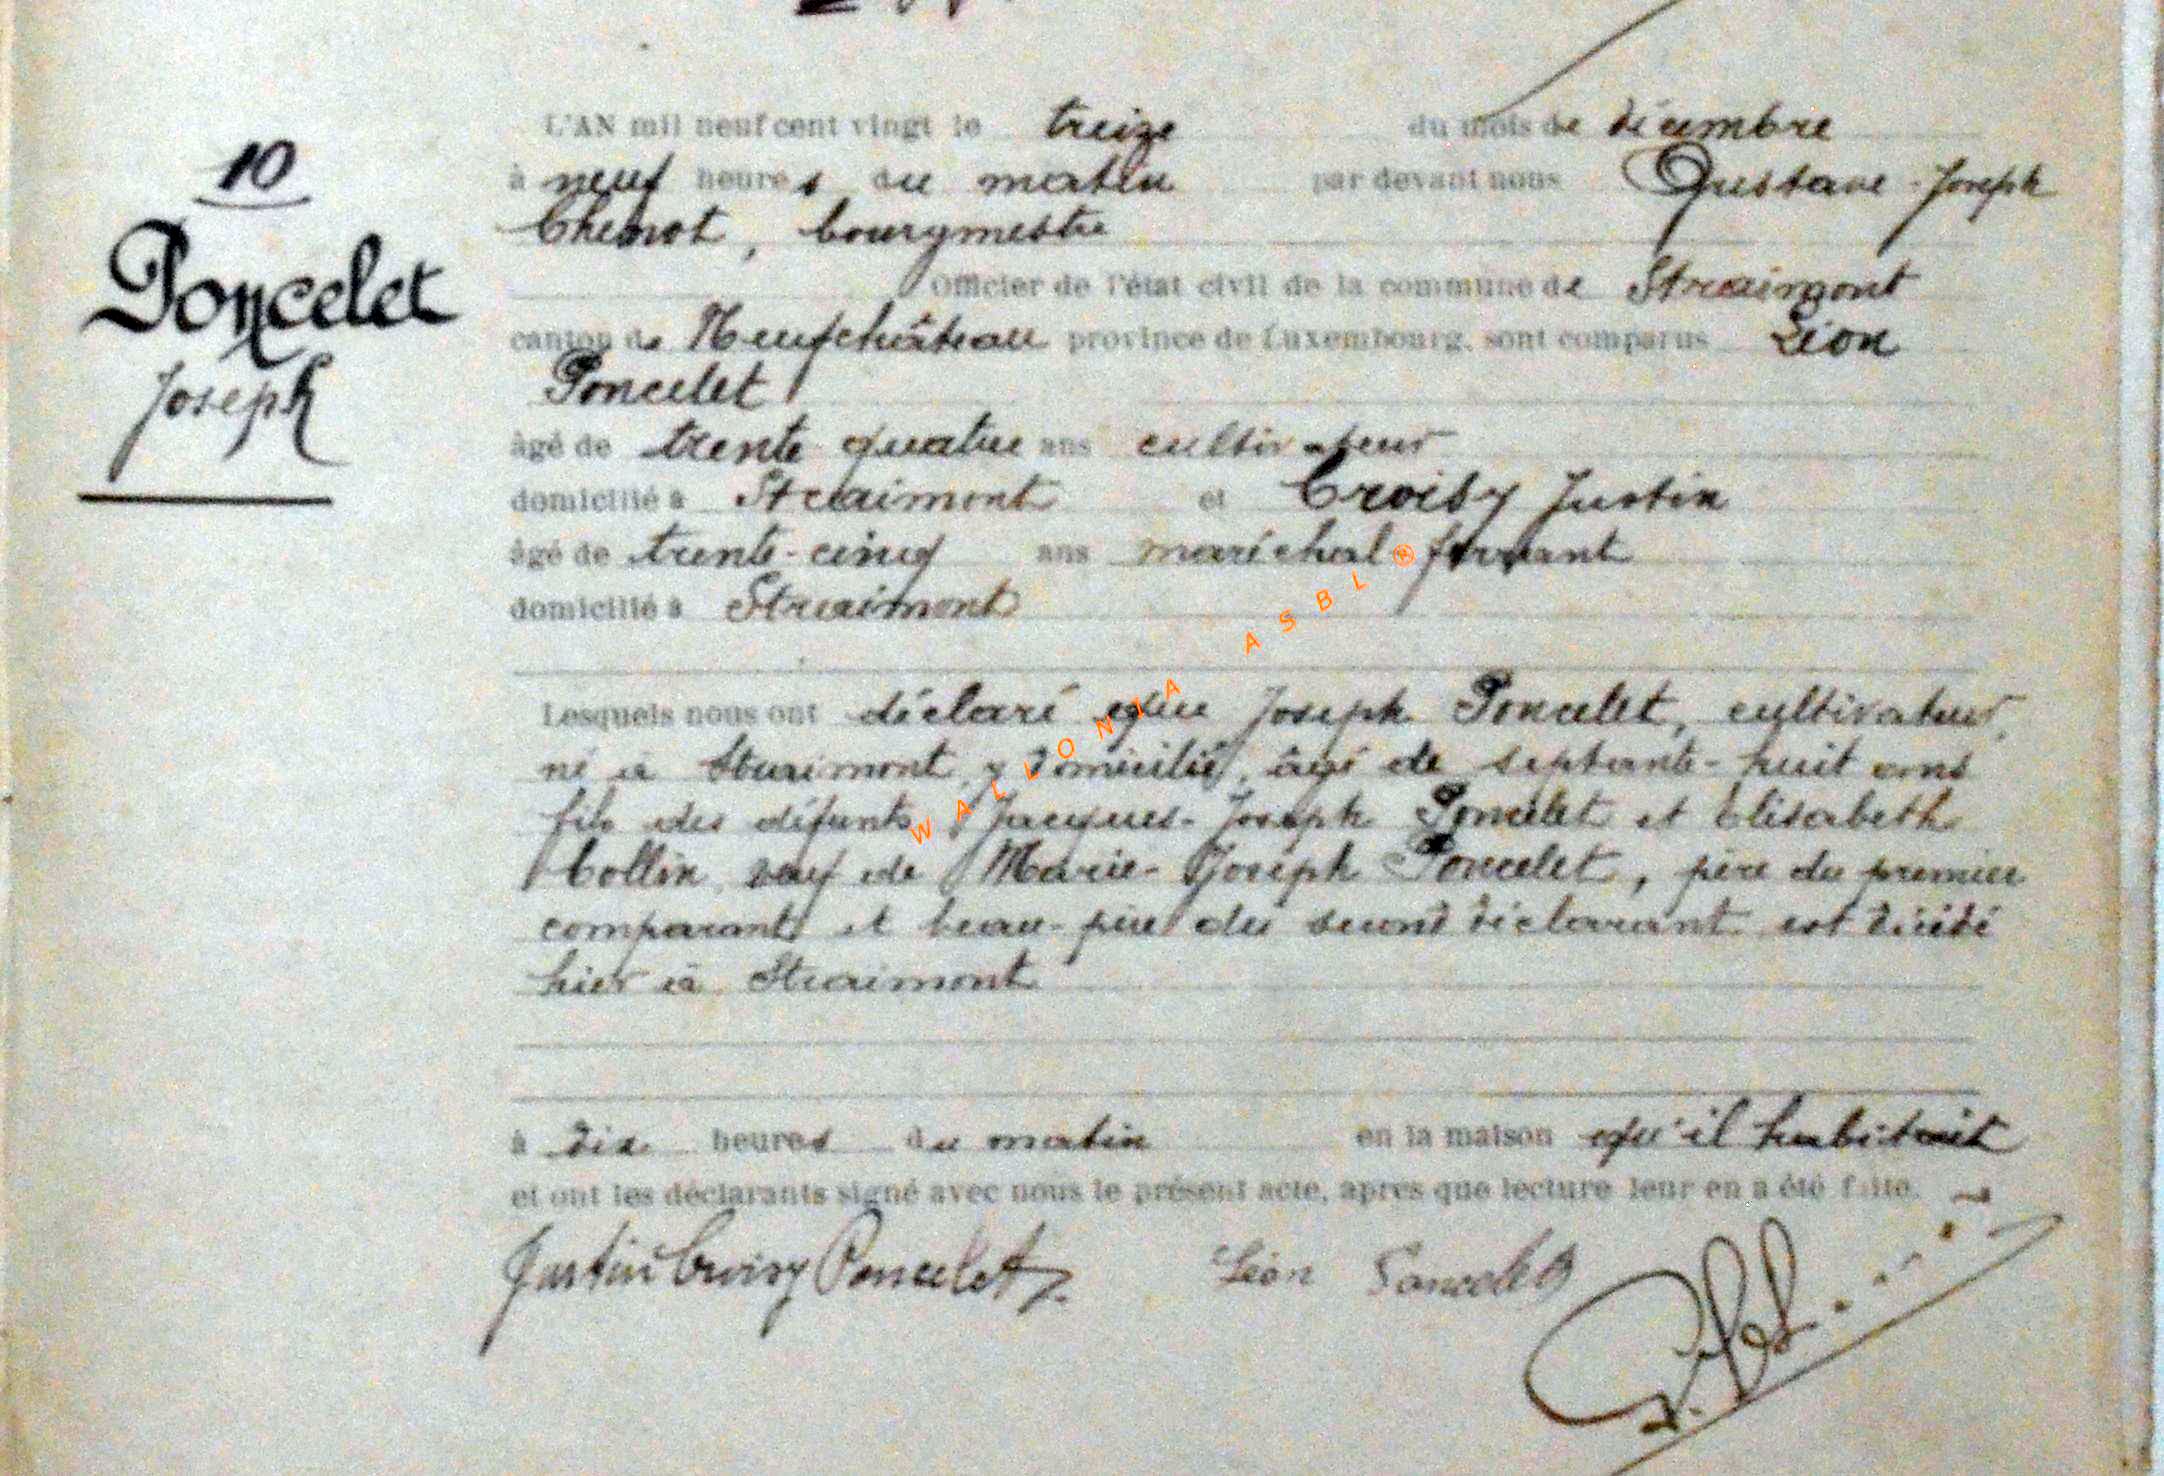 10
Poncelet
Joseph
L'AN mil neuf cent vingt le treize du mois de décembre
à neuf heures du matin par devant nous Gustave-Joseph
Chenot, bourgmestre
Officier de l'état civil de la commune de Straimont
canton de Neufchâteau province de Luxembourg, sont comparus Léon
Poncelet
âgé de trente quatre ans cultivateur
domicilié à Straimont et Croisy Justin
âgé de trente-cinq ans maréchal-ferrant
domicilié à Straimont
Lesquels nous ont déclaré que Joseph Poncelet, cultivateur,
né à Straimont y domicilié, âgé de septante-huit ans
fils des défunts Jacques-Joseph Poncelet et Elisabeth
Collin veuf de Marie-Joseph Poncelet, père du premier
comparant et beau-père du second déclarant est décédé
hier à Straimont
à dix heures du matin en la maison qu'il habitait
et ont les déclarants signé avec nous le présent acte, après que lecture leur en a été faite.
Justin Croisy Poncelet Léon Poncelet
WALLONIA ASBL ®